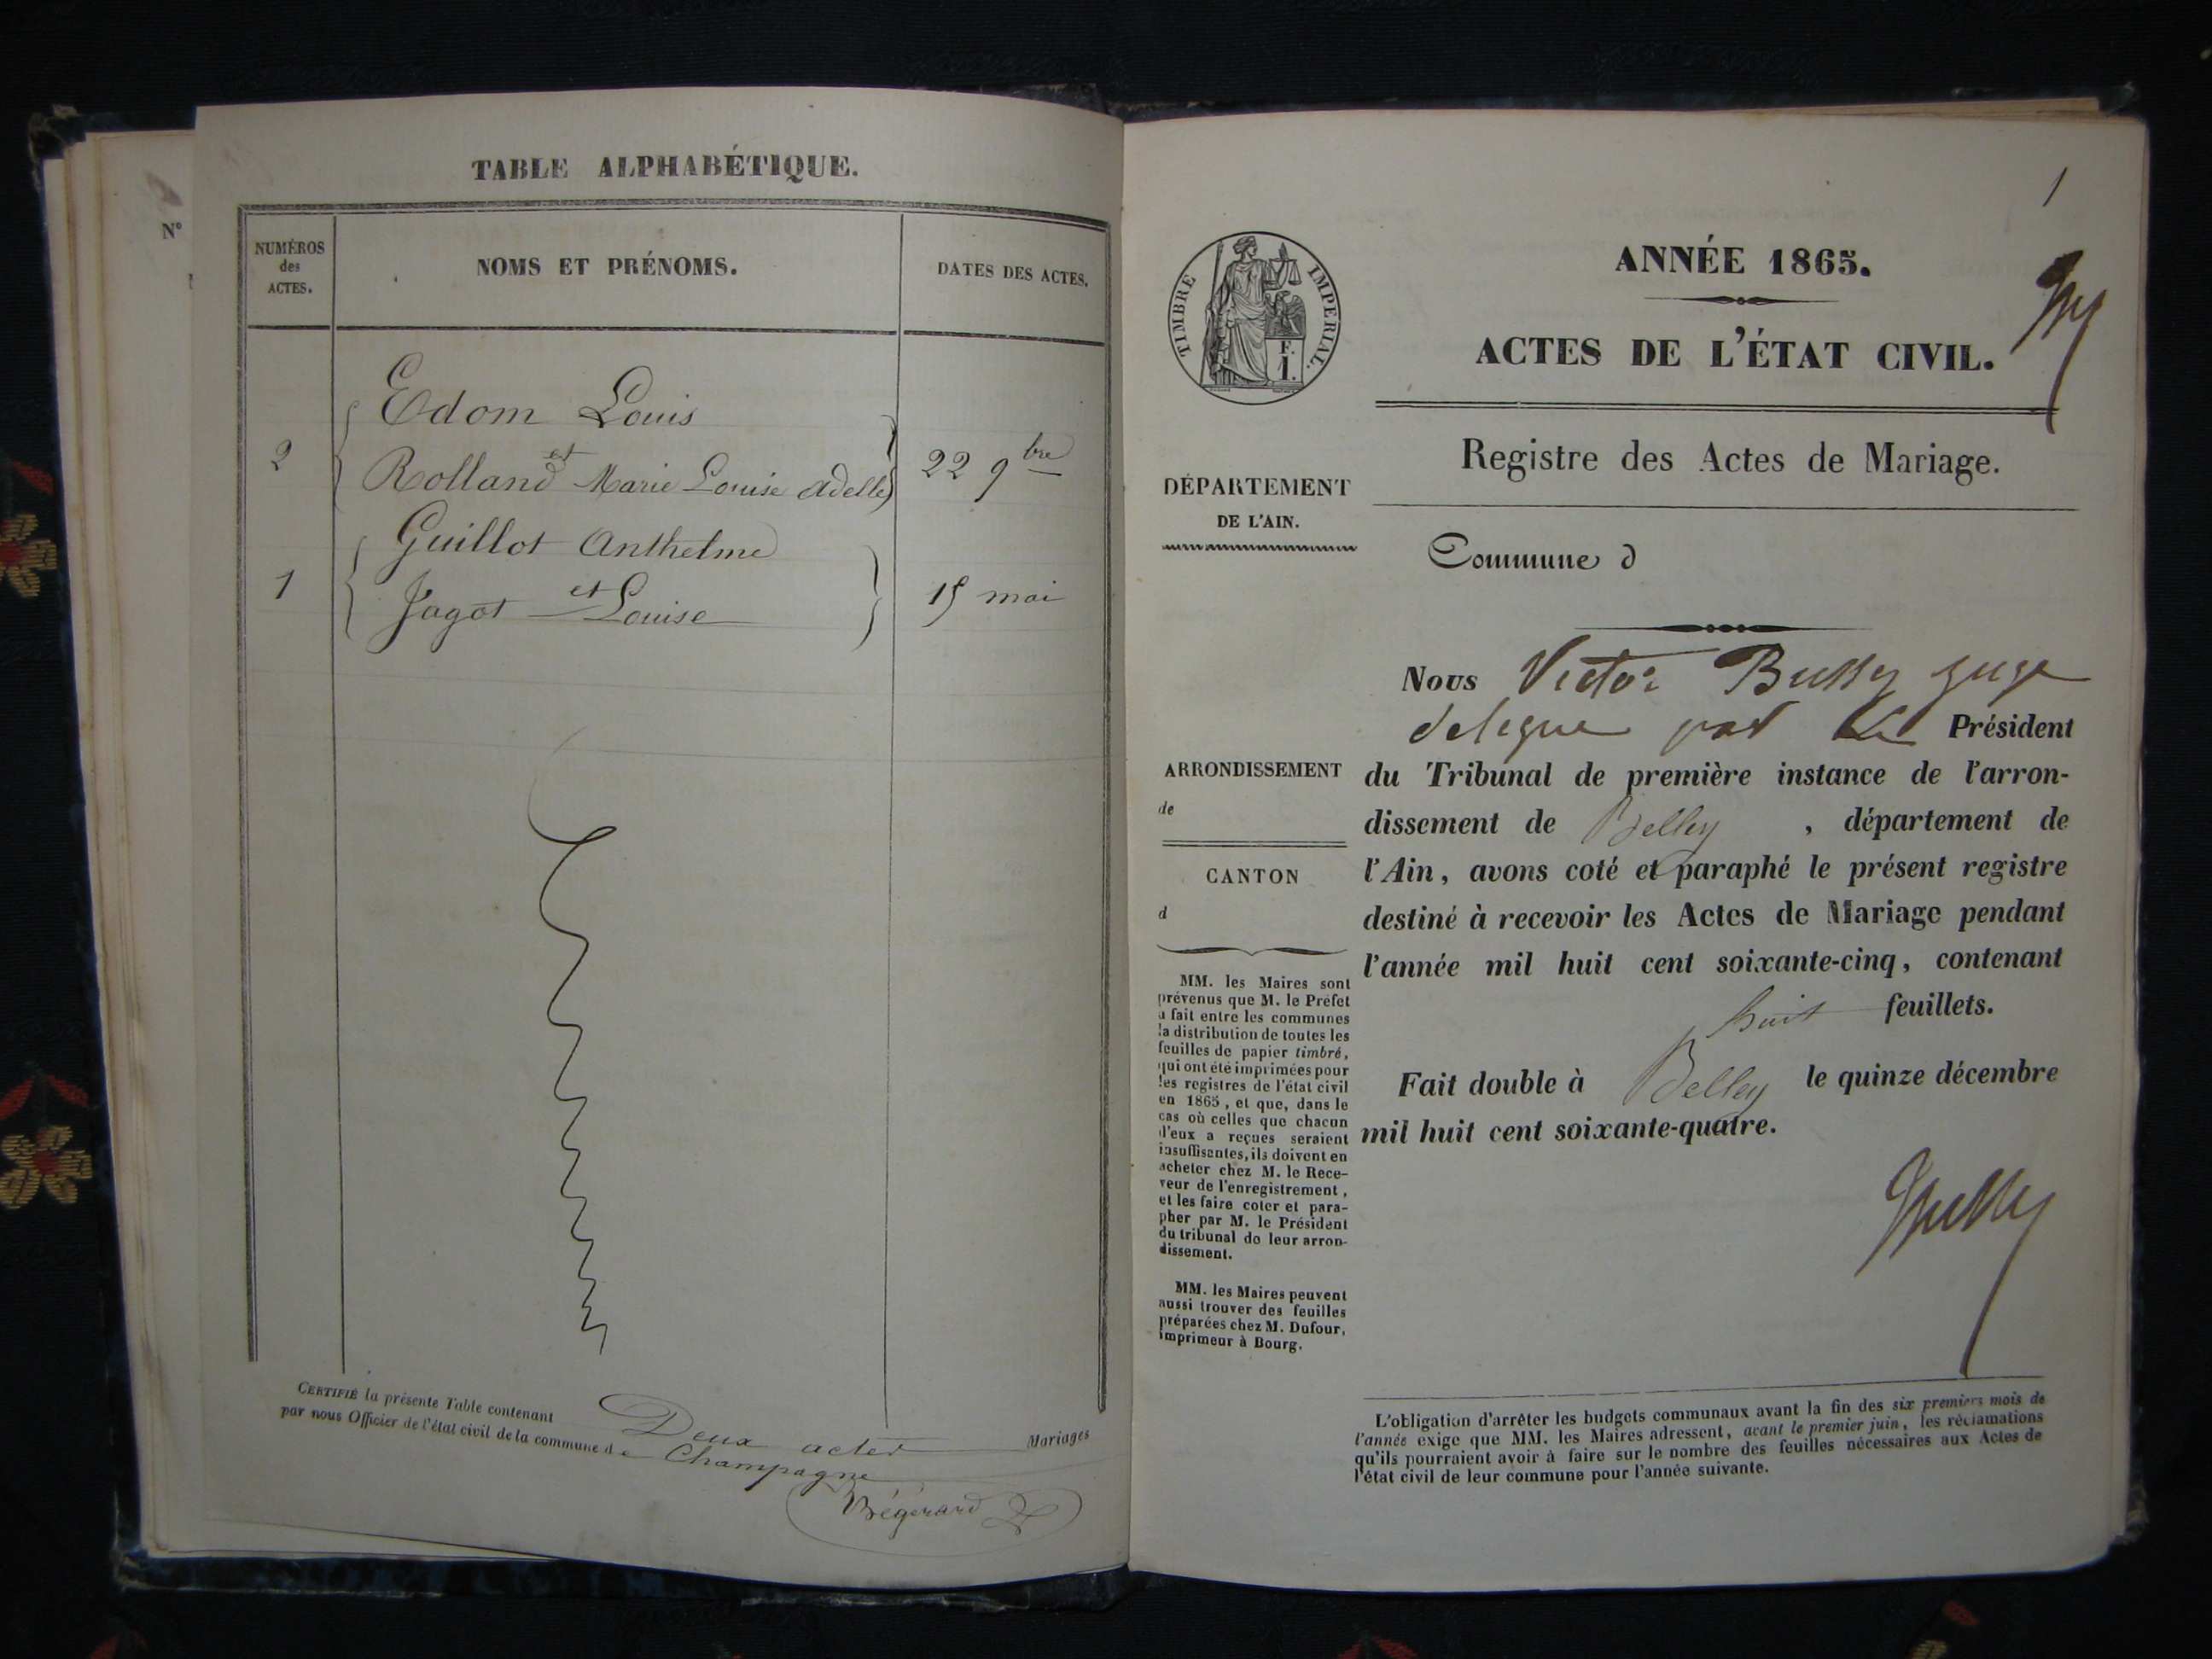 N°
TABLE ALPHABÉTIQUE.
NUMÉROS
des
ACTES.
NOMS ET PRÉNOMS.
DATES DES ACTES.
Edom Louis
2
et
Rolland Marie Louise Adelle
22 9bre
Guillot Anthelme
1
et
Jagot Louise
15 mai
CERTIFIÉ la présente Table contenant Deux actes Mariages
par nous Officier de l'état civil de la commune de Champagne
Brégérard
1
TIMBRE IMPERIAL.
F.
1.
ANNÉE 1865.
ACTES DE L'ÉTAT CIVIL.
Registre des Actes de Mariage.
DÉPARTEMENT
DE L'AIN.
Commune d
Nous Victor Bussy juge
delegue par le Président
du Tribunal de première instance de l'arron-
dissement de Belley , département de
l'Ain, avons coté et paraphé le présent registre
destiné à recevoir les Actes de Mariage pendant
l'année mil huit cent soixante-cinq, contenant
huit feuillets.
Fait double à Belley le quinze décembre
mil huit cent soixante-quatre.
Bussy
ARRONDISSEMENT
de
CANTON
d
MM. les Maires sont
prévenus que M. le Préfet
a fait entre les communes
la distribution de toutes les
feuilles de papier timbré,
qui ont été imprimées pour
les registres de l'état civil
en 1865, et que, dans le
cas où celles que chacun
d'eux a reçues seraient
insuffisantes, ils doivent en
acheter chez M. le Rece-
veur de l'enregistrement,
et les faire coter et para-
pher par M. le Président
du tribunal de leur arron-
dissement.
MM. les Maires peuvent
aussi trouver des feuilles
préparées chez M. Dufour,
imprimeur à Bourg.
L'obligation d'arrêter les budgets communaux avant la fin des six premiers mois de
l'année exige que MM. les Maires adressent, avant le premier juin, les réclamations
qu'ils pourraient avoir à faire sur le nombre des feuilles nécessaires aux Actes de
l'état civil de leur commune pour l'année suivante.